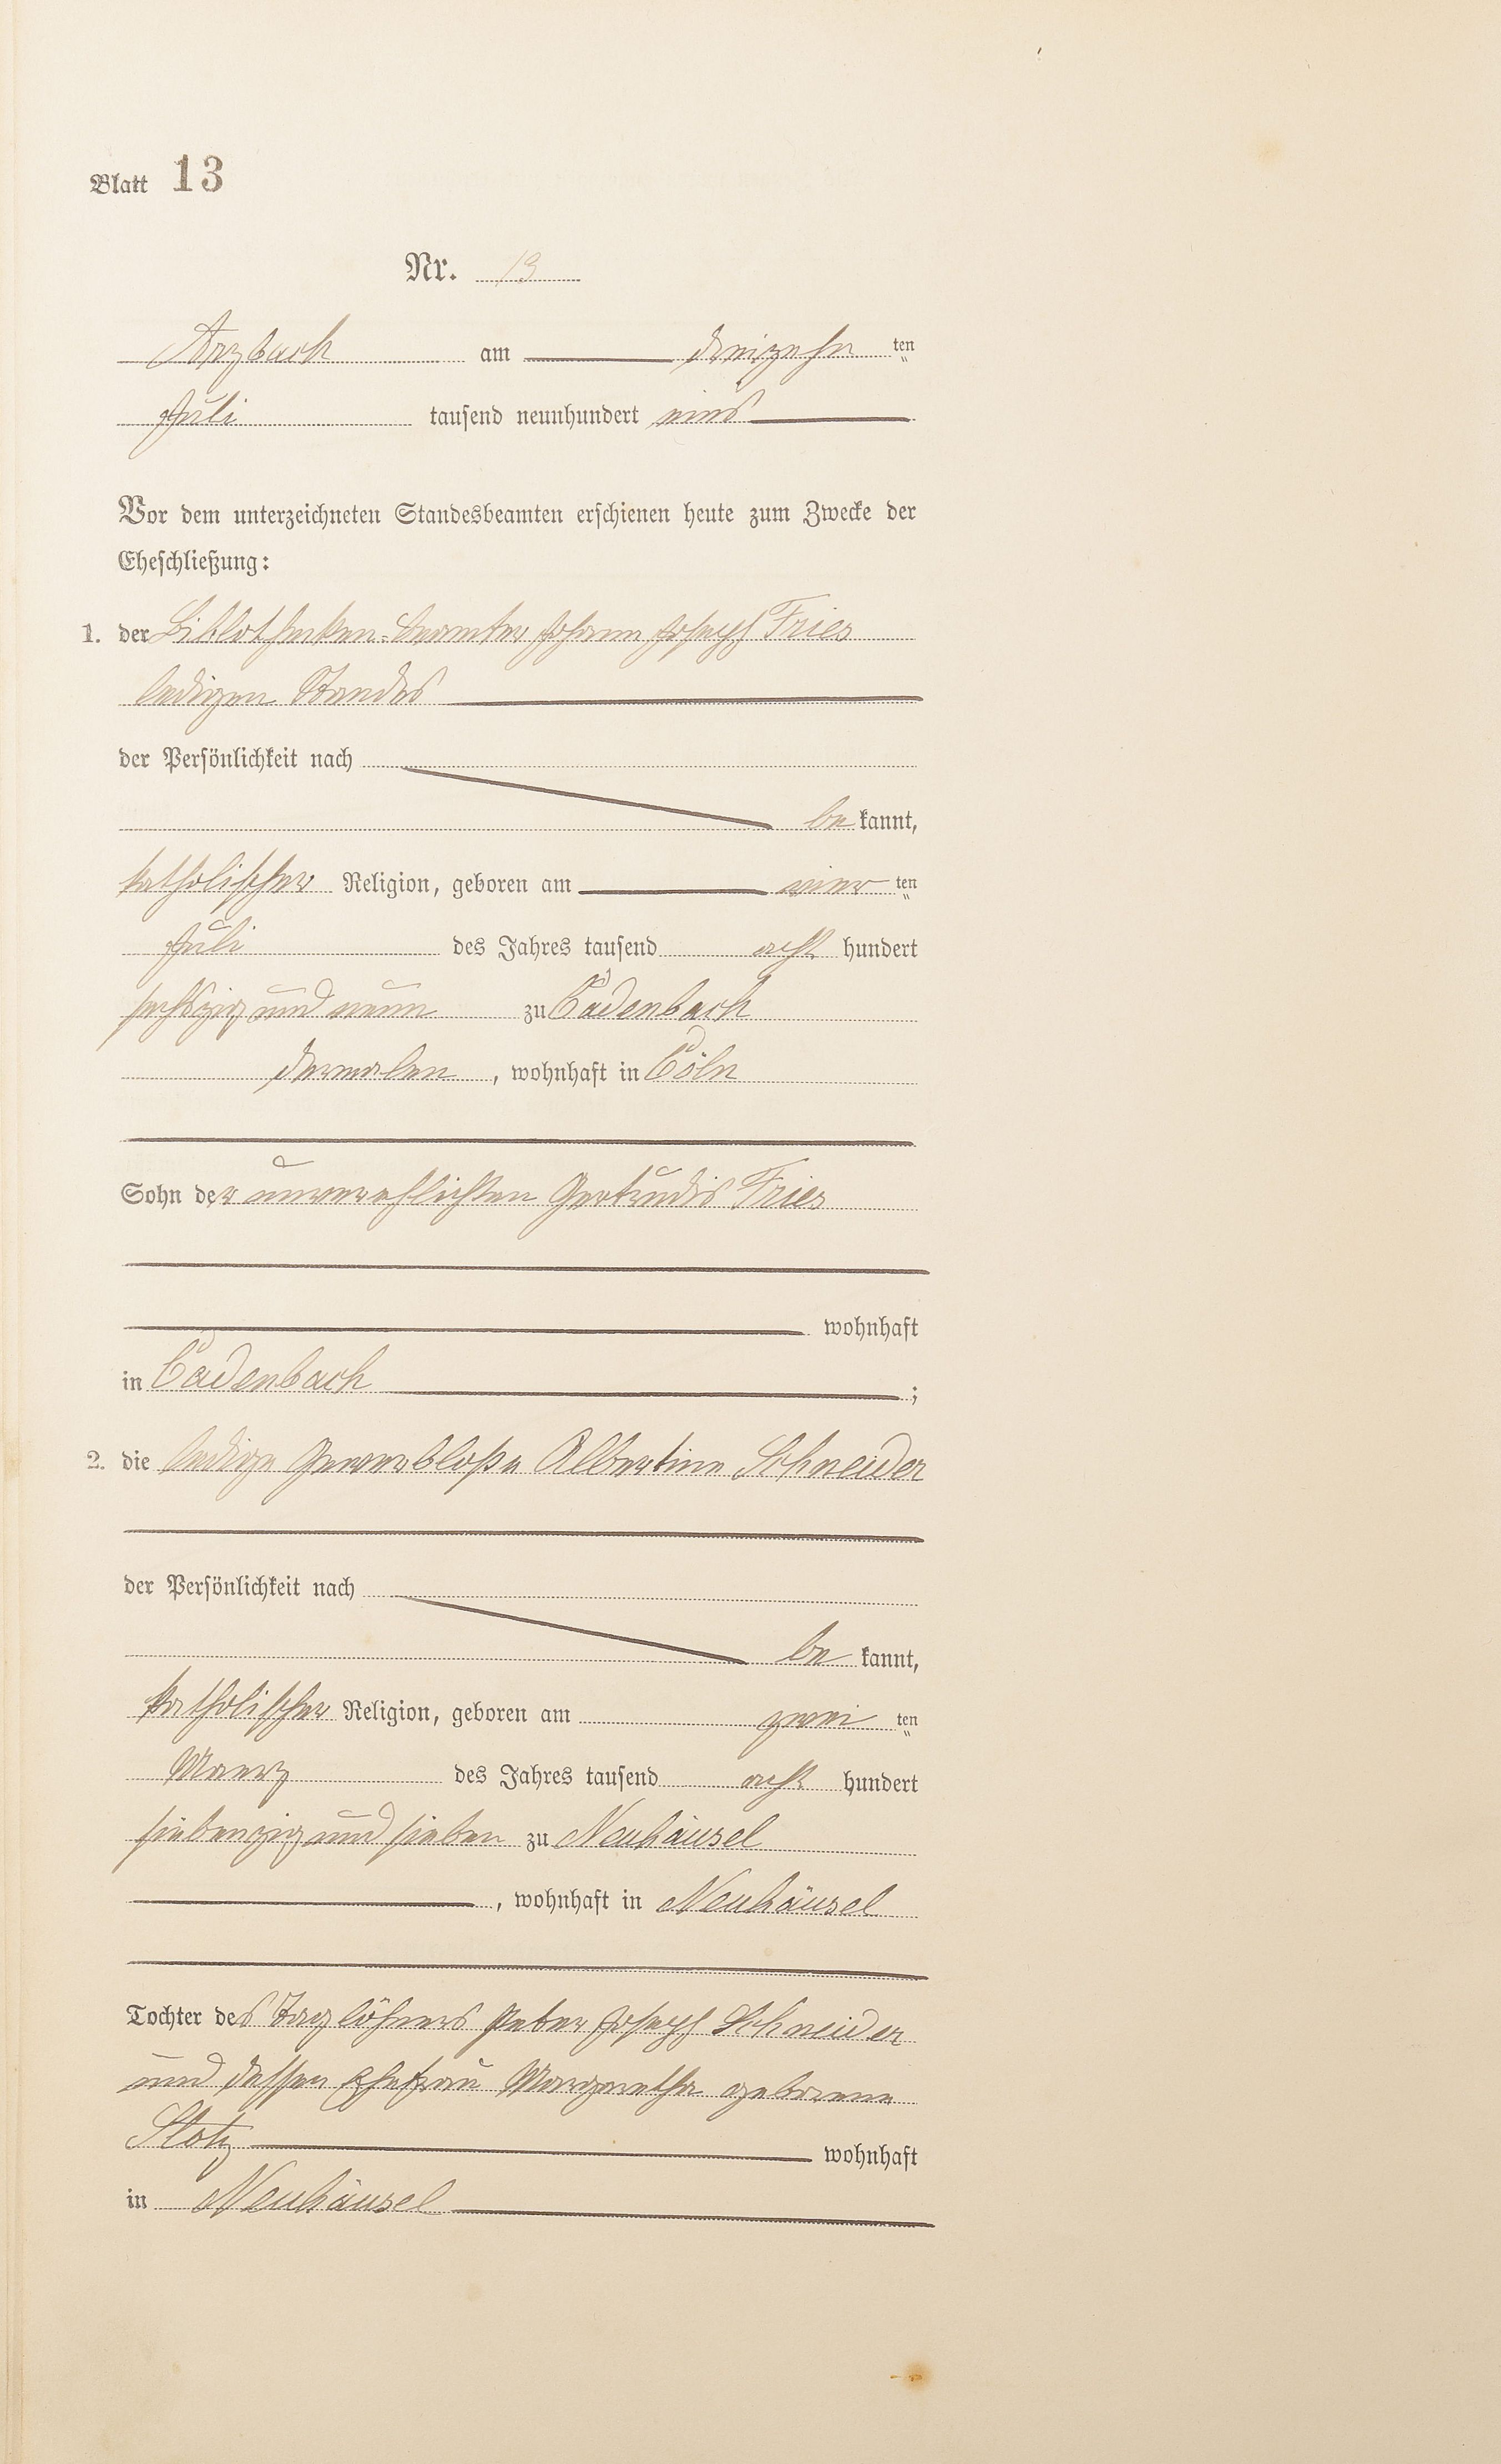 Blatt 13
Nr. 13
Arzbach am dreizehn ten
Juli tausend neunhundert eins
Vor dem unterzeichneten Standesbeamten erschienen heute zum Zwecke der
Eheschließung:
1. der Bibliotheken-Beamter Johann Joseph Fries
ledigen Standes
der Persönlichkeit nach
be kannt,
katholischer Religion, geboren am vier ten
Juli des Jahres tausend acht hundert
sechszig und neun zu Cadenbach
dermalen, wohnhaft in Cöln
Sohn der unverehlichten Gertrudis Fries
wohnhaft
in Cadenbach ;
2. die ledige Gewerbloße Albertine Schneider
der Persönlichkeit nach
be kannt,
katholischer Religion, geboren am zwei ten
Maerz des Jahres tausend acht hundert
siebenzig und sieben zu Neuhäusel
, wohnhaft in Neuhäusel
Tochter des Taglöhners Peter Joseph Schneider
und dessen Ehefrau Margaretha geborene
Stotz wohnhaft
in Neuhäusel